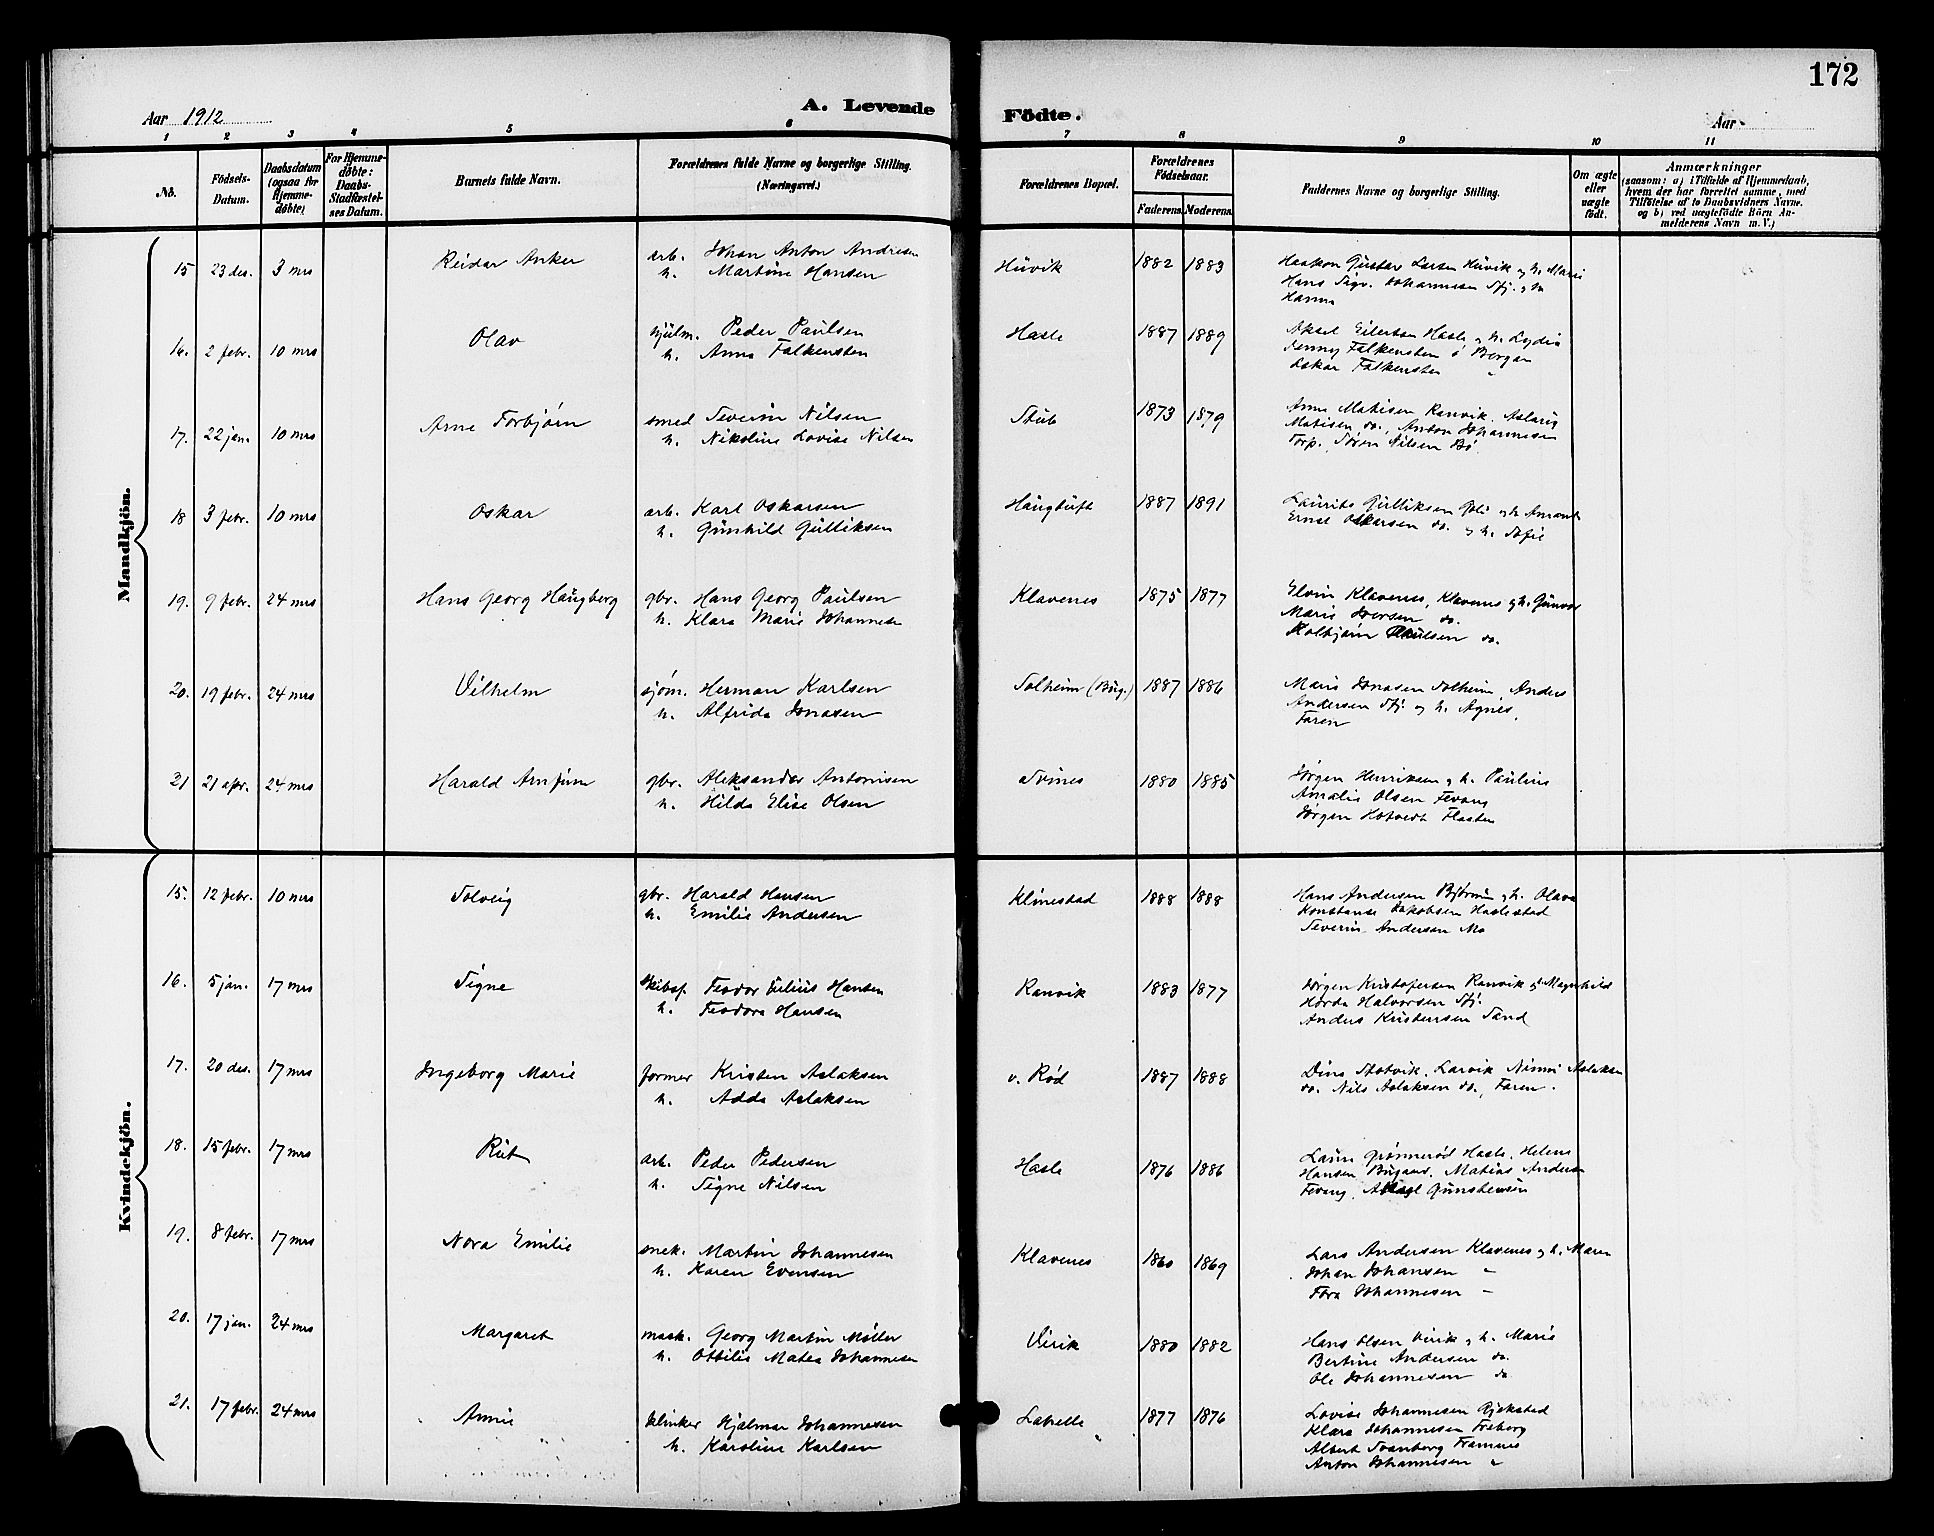 172
Aar 1912
A. Levende
Födte.
Aar
1 2 3 4 5 6 7 8 9 10 11
No.
Födsels-
Datum.
Daabsdatum
(ogsaa for
Hjemme-
döbte)
For Hjemme-
döbte:
Daabs-
Stadfæstel-
ses Datum.
Barnets fulde Navn.
Forældrenes fulde Navne og borgerlige Stilling.
(Næringsvei.)
Forældrenes Bopæl.
Forældrenes
Födselsaar.
Faderens.
Moderens.
Faddernes Navne og borgerlige Stilling.
Om ægte
eller
uægte
födt.
Anmærkninger
(saasom: a) i Tilfælde af Hjemmedaab,
hvem der har forrettet samme, med
Tilföielse af to Daabsvidners Navne.
og b) ved uægtefödte Börn An-
melderens Navn m. V.)
Mandkjön.
15 23 des. 3 mrs Reidar Anker arb. Johan Anton Andresen
h. Martine Hansen
Huvik 1882 1883 Haakon Gustav Larsen Huvik og h. Marie
Hans Sigv. Johannesen Stj. og h
Hanna
16. 2 febr. 10 mrs Olav hjulm. Peder Paulsen
h. Anna Falkensten
Hasle 1887 1889 Aksel Eilertsen Hasle og h. Lydia
Jenny Falkensten Borgen
Oskar Falkensten "
17. 22 jan. 10 mrs Arne Torbjørn smed Severin Nilsen
h. Nikoline Lovise Nilsen
Stub 1873 1879 Anna Matisen Ranvik. Aslaug
Matisen do., Anton Johannesen
Torp. Søren Nilsen Bø.
18 3 febr. 10 mrs Oskar arb. Karl Oskarsen
h. Gunhild Gulliksen
Haugtuft 1887 1891 Laurits Gulliksen og h. Amanda
Ernst Oskarsen do. og h. Sofie
19. 9 febr. 24 mrs Hans Georg Haugberg gbr. Hans Georg Paulsen
h. Klara Marie Johannesen
Klavenes 1875 1877 Elvin Klavenes, Klavenes og h. Gunvor
Marie Iversen do.
Kolbjørn Paulsen do.
20. 19 febr. 24 mrs Vilhelm sjøm. Herman Karlsen
h. Alfrida Jonasen
Solheim (Bug.) 1887 1886 Marie Jonasen Solheim, Anders
Andersen Stj. og h. Agnes,
Faren
21 21 apr. 24 mrs Harald Arnfinn gbr. Aleksander Antonisen
h. Hilda Elise Olsen
Svines 1880 1885 Jørgen Henriksen og h. Pauline
Amalie Olsen Fevang
Jørgen Hotvedt Flaaten
Kvindekjön.
15. 12 febr. 10 mrs Solveig gbr. Harald Hansen
h. Emilie Andersen
Klinestad 1888 1888 Hans Andersen og h. Olava
Konstanse Jakobsen Haslestad
Severin Andersen Mo
16. 5 jan. 17 mrs Signe skibsf. Feodor Julius Hansen
h. Feodora Hansen
Ranvik 1883 1877 Jørgen Kristofersen Ranvik og h. Magnhild
Halvorsen Stj.
Anders Kristensen Sand
17. 20 des. 17 mrs Ingeborg Marie former Kristen Aslaksen
h. Adda Aslaksen
v. Rød 1887 1888 Dina Larvik Aslaksen
do. Nils Aslaksen do., Faren.
18. 15 febr. 17 mrs Rut arb. Peder Pedersen
h. Signe Nilsen
Hasle 1876 1886 Laura Grønnerød Hasle, Helene
Hansen Matias Andersen
Fevang, Gunstensen
19. 8 febr. 17 mrs Nora Emilie snek. Martin Johannesen
h. Karen Evensen
Klavenes 1860 1869 Lars Andersen Klavenes og h. Maren
Johan Johansen "
Tora Johannesen "
20. 17 jan. 24 mrs Margaret mask. Georg Martin Møller
h. Ottilie Matea Johannesen
Virik 1880 1882 Hans Olsen Virik og h. Marie
Bertine Andersen do.
Ole Johannesen do
21. 17 febr. 24 mrs Annie klinker Hjalmar Johannesen
h. Karoline Karlsen
1877 1876 Lovise Johannesen Gjekstad
Klara Johannesen Freberg
Albert Svanberg Framnes
Anton Johannesen "